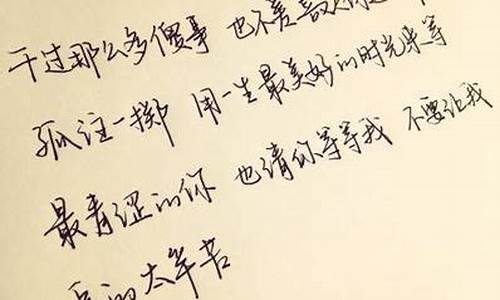 干过那么多傻事 也不差
孤注一掷 用一生最美好的时光来等
最青涩的你 也请你等等我 不要让我
的太辛苦